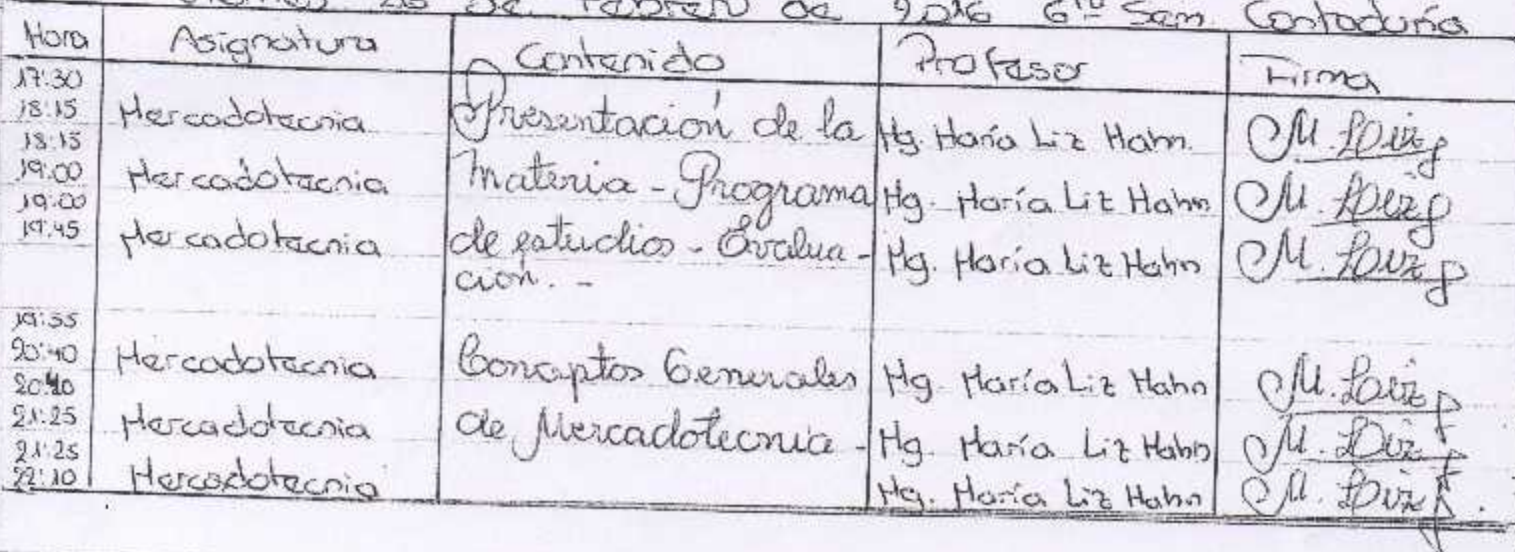 Viernes 26 de Febrero de 2016 6to Sem Contaduría
Hora Asignatura Contenido Profesor Firma
17:30
18:15 Mercadotecnia Presentación de la Mg. María Liz Hahn. M. Liz
18:15
19:00 Mercadotecnia materia - Programa Mg. María Liz Hahn M. Liz
19:00
19:45 Mercadotecnia de estudios - Evalua- Mg. María Liz Hahn M. Liz
ción. -
19:55
20:40 Mercadotecnia Conceptos Generales Mg. María Liz Hahn M. Liz
20:40
21:25 Mercadotecnia de Mercadotecnia - Mg. María Liz Hahn M. Liz
21:25
22:10 Mercadotecnia Mg. María Liz Hahn M. Liz